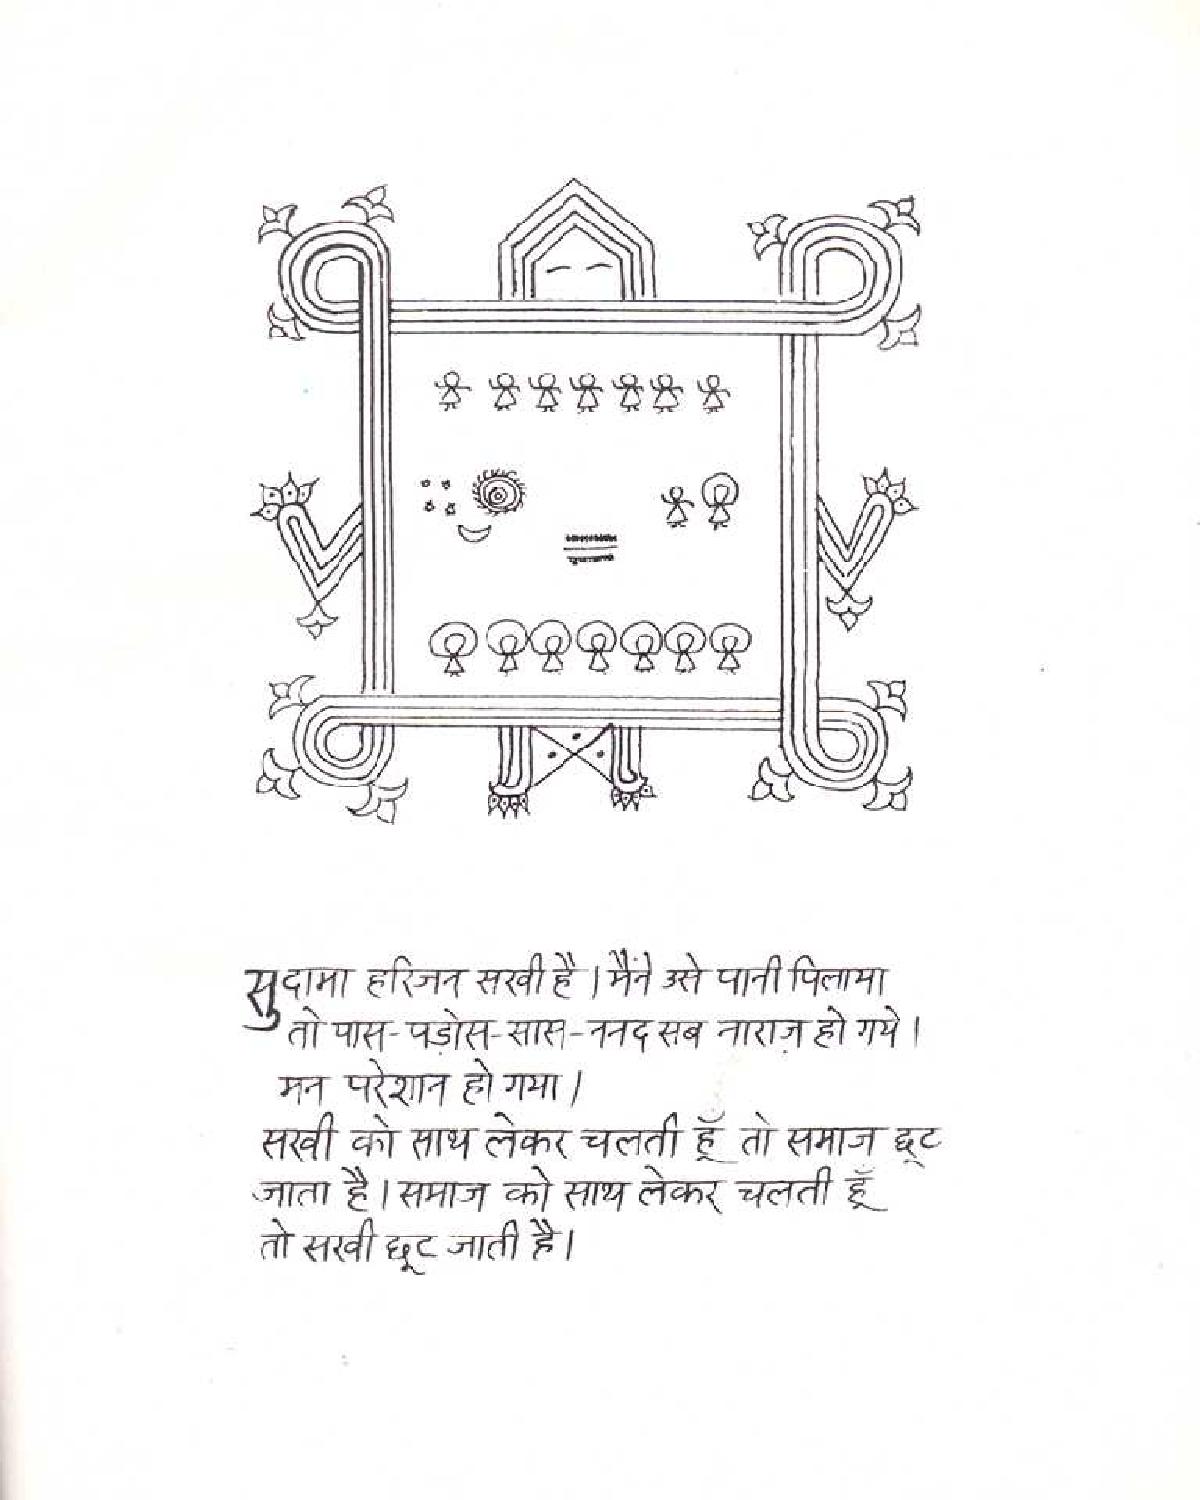 सुदामा हरिजन सखी है। मैंने उसे पानी पिलाया
तो पास-पड़ोस-सास-ननद सब नाराज़ हो गये।
मन परेशान हो गया।
सखी को साथ लेकर चलती हूँ तो समाज छूट
जाता है। समाज को साथ लेकर चलती हूँ
तो सखी छूट जाती है।